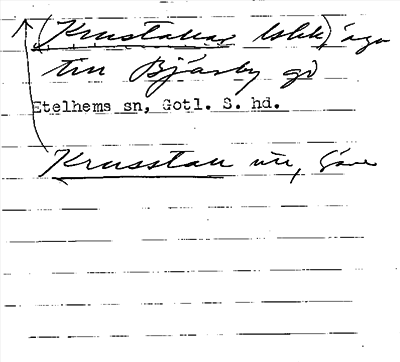 (Krustallas blek), äga
till Bjärby gd
Etelhems sn, Gotl. S. hd.
Krusstau